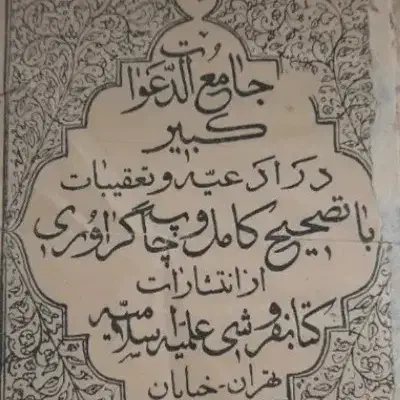 جامع الدّعوات
کبیر
در ادعیه و تعقیبات
با تصحیح کامل و چاپ گراوری
از انتشارات
کتابفروشی علمیه اسلامیه
تهران-خیابان